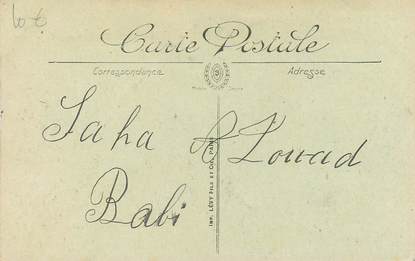 Carte Postale
Correspondance
Adresse
Saha
Louad
Babi
IMP. LÉVY FILS ET CIE, PARIS